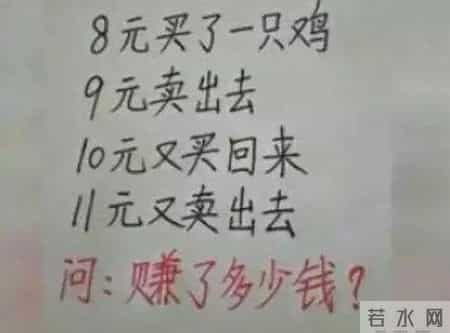 8元买了一只鸡
9元卖出去
10元又买回来
11元又卖出去
问:赚了多少钱?
若水网